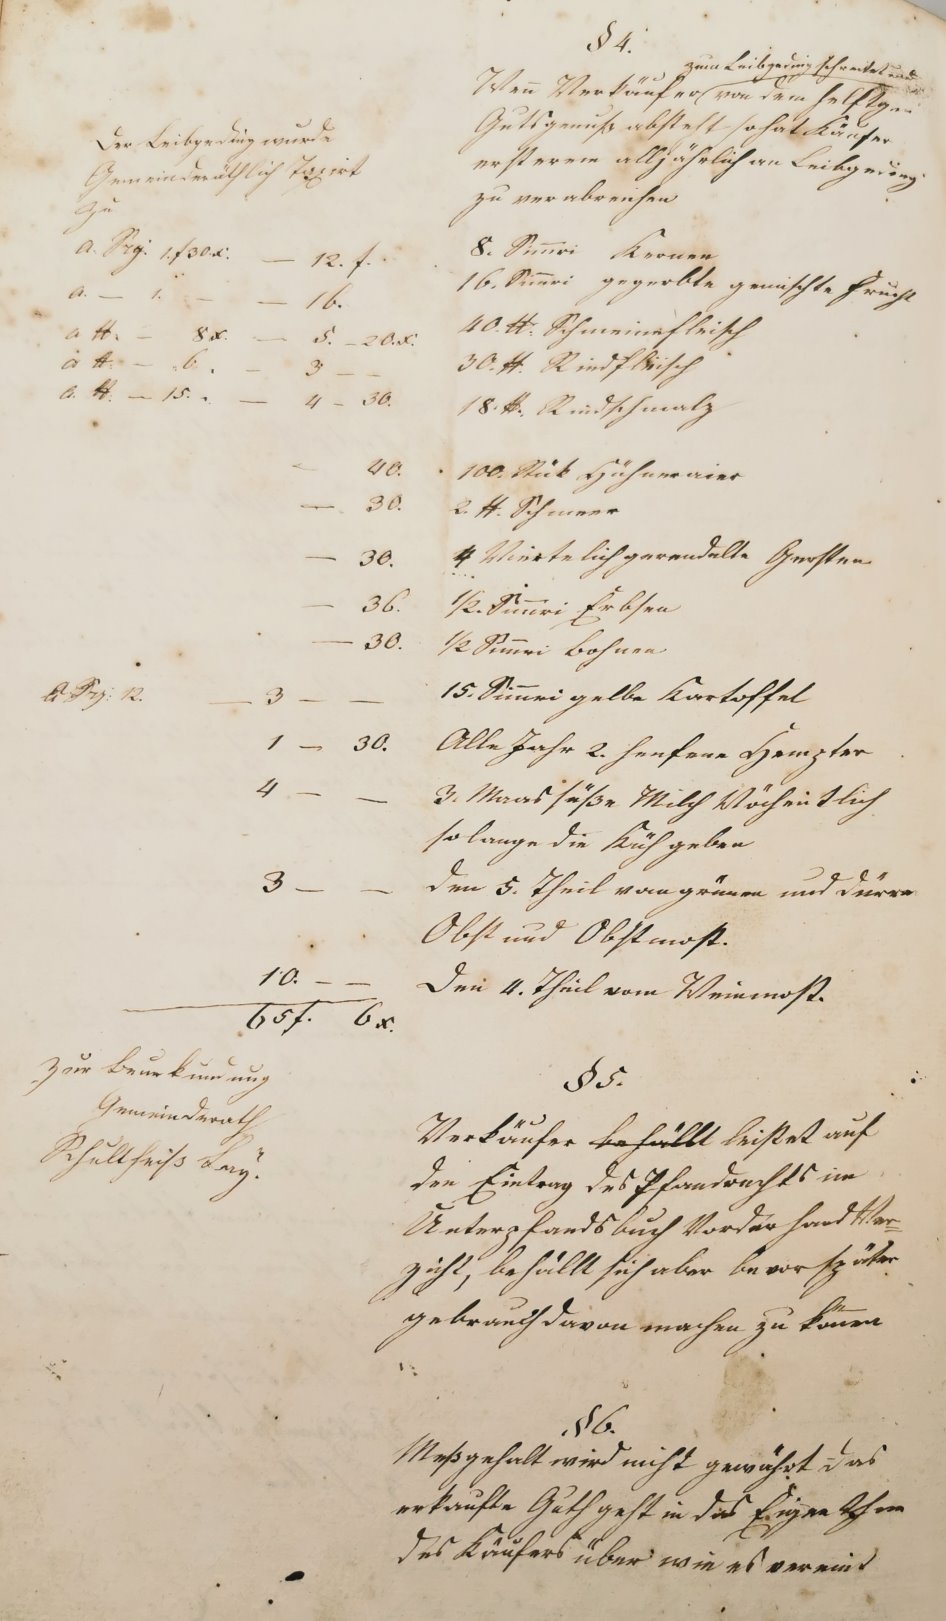 § 4.
zum Leibgeding schreitet und
Wenn Verkäufer von dem helftgen
Gutsgenuß absteht so hat Käufer
ersterem alljährlich an Leibgeding
zu verabreichen
Der Leibgeding wurde
Gemeinderäthlich Taxirt
zu
a. Sry: 1.f 30.x. — 12. f. 8. Simri Kernen
a. — 1. — — 16. 16. Simri gegerbte gemischte Frucht
a ℔. — 8x. — 5. — 20.x. 40. ℔. Schweinefleisch
a ℔. — 6. — 3 — — 30. ℔. Rindfleisch
a. ℔. — 15. — 4 — 30. 18. ℔. Rindschmalz
— 40. 100. Stük Hühneraier
— 30. 2. ℔. Schmeer
— 30. 4 Viertelich gerendelte Gersten
— 36. 1/2. Simri Erbsen
— 30. 1/2 Simri Bohnen
a Sry: 12. — 3 — — 15. Simri gelbe Kartoffel
1 — 30. Alle Jahr 2. henfene Hempter
4 — — 3. Maas süße Milch Wöchentlich
so lange die Küh geben
3 — — den 5. Theil von grünen und dürren
Obst und Obstmost.
10. — — Den 4. Theil vom Weinmost.
65 f. 6 x.
Zur Beurkundung
Gemeinderath
Schultheiß
§ 5.
Verkäufer behällt leistet auf
den Eintrag des Pfandrechts im
Unterpfandsbuch Vorderhand Ver=
zicht, behällt sich aber bevor später
gebrauch davon machen zu können
§ 6.
Meßgehalt wird nicht gewährt das
erkaufte Guth geht in das Eigenthum
des Käufers über wie es vereint